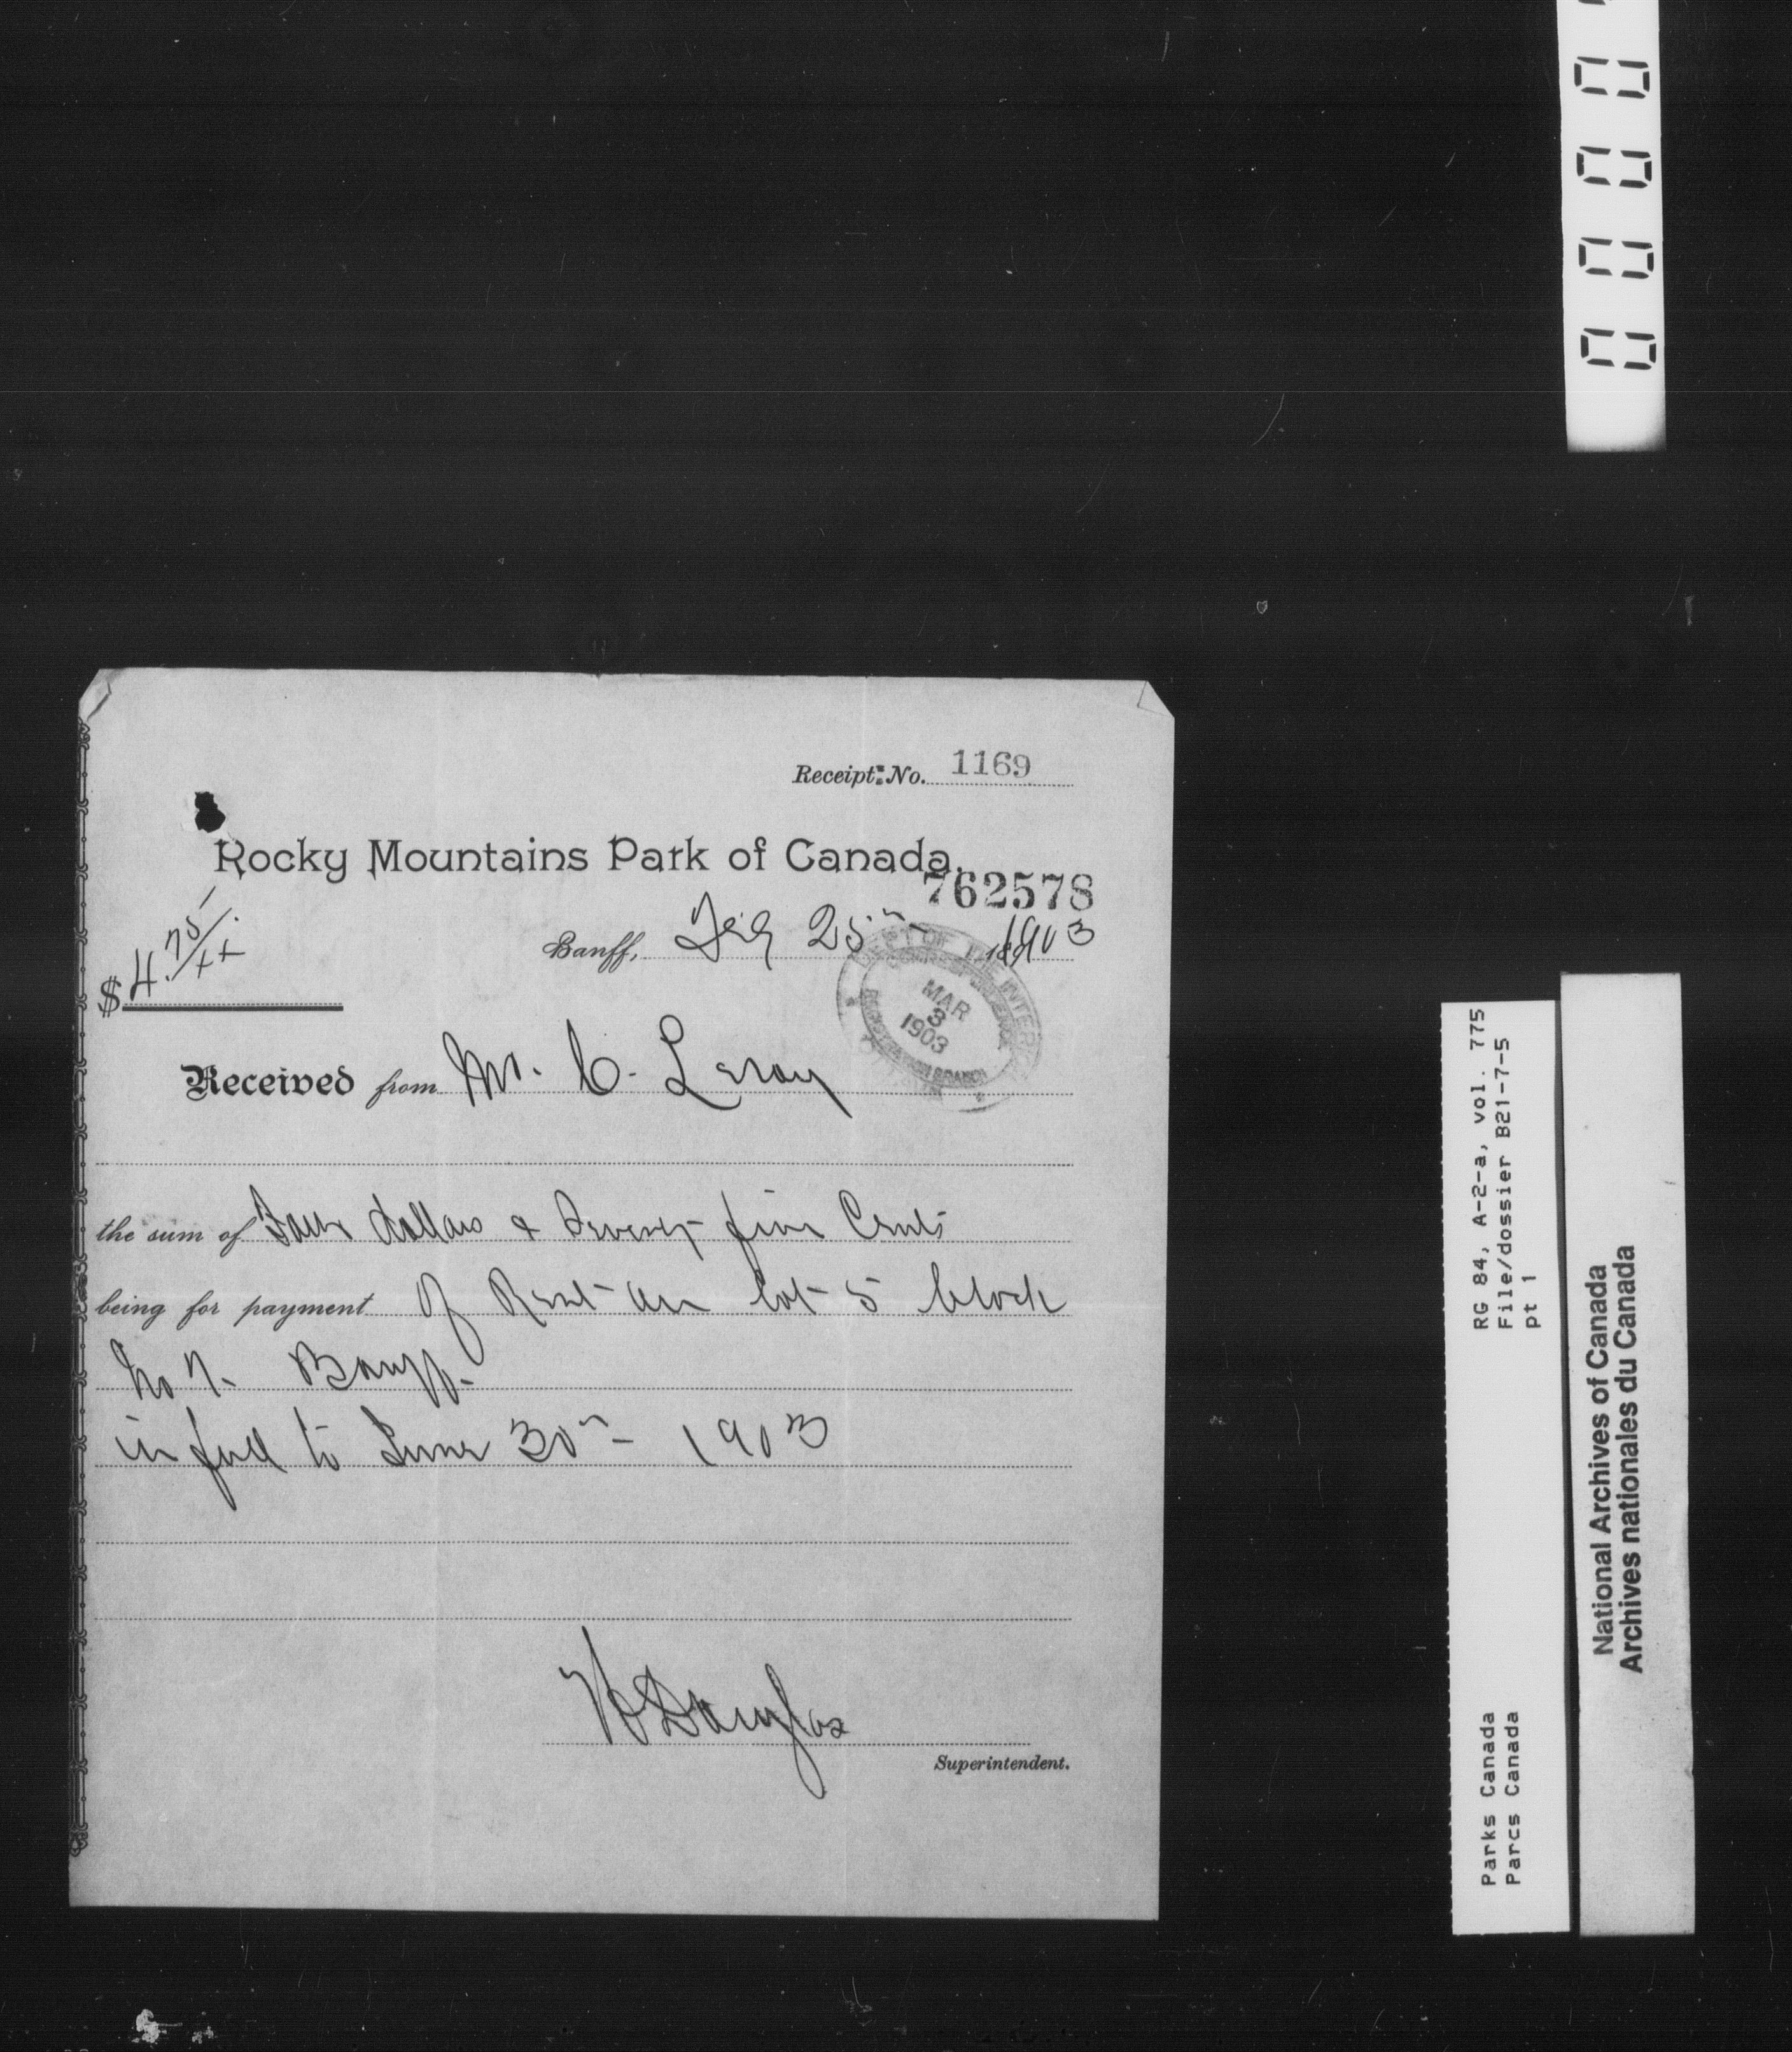 Receipt No. 1169
Rocky Mountains Park of Canada.
762578
Banff, Feb 25th 1903
$4.75/xx
DEPT OF THE INTERIOR
MAR
3
1903
Received from Mr. C. Leroy
the sum of Four dollars & Seventy five Cents
being for payment of Rent on lot 5 block
No 7. Banff.
in full to June 30th 1903
H Douglas
Superintendent.
0 0 0 0
RG 84, A-2-a, vol. 775
File/dossier B21-7-5
pt 1
Parks Canada
Parcs Canada
National Archives of Canada
Archives nationales du Canada